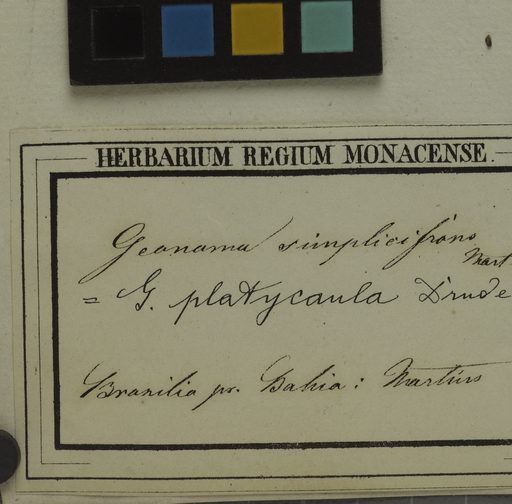 HERBARIUM REGIUM MONACENSE.
Geonoma simplicifrons
Mart
= G. platycaula Drude
Brasilia pr. Bahia: Martius